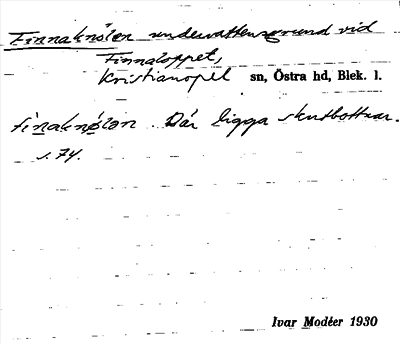 Finnaknølen undervattensgrund vid
Finnaloppet,
Kristianopel sn, Östra hd, Blek. l.
finaknølən. Där ligga skutbottnar.
s. 74.
Ivar Modéer 1930